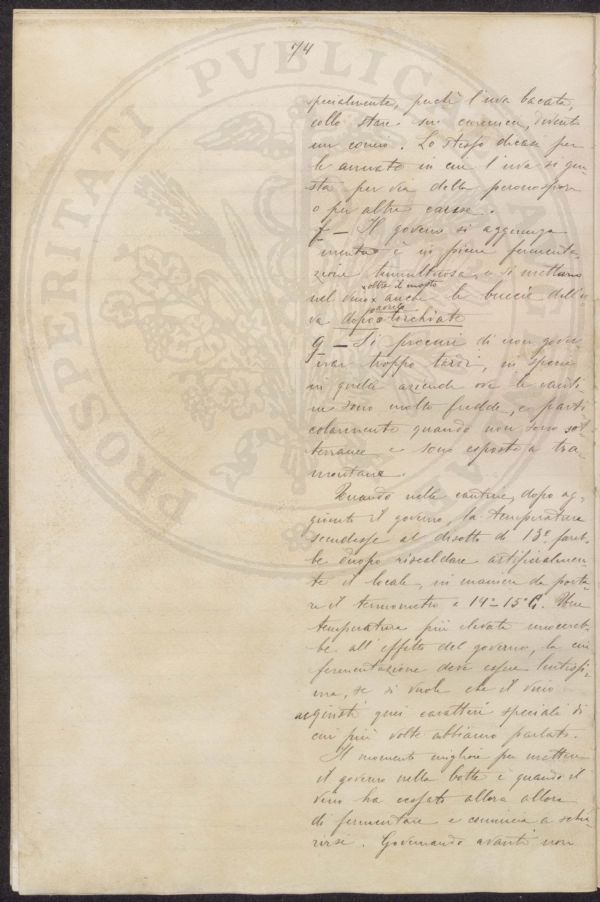 74
specialmente, perchè l'uva bacata,
collo stare su cannicci, diventa
un covo. Lo stesso dicasi per
le annate in cui l'uva si gua-
sta per via della peronospora
o per altre cause.
f — Il governo si aggiunga
mentre è in piena fermenta-
zione tumultuosa, e si mettano
oltre il mosto
nel vino anche le buccie dell'u-
averla
va dopo torchiata
g — Si procuri di non gover-
nar troppo tardi, in specie
in quelle aziende ove le canti-
ne sono molto fredde, e parti-
colarmente quando non sono sot-
terranee e sono esposte a tra-
montana.
Quando nelle cantine, dopo ag-
giunto il governo, la temperatura
scendesse al disotto di 13° fareb-
be duopo riscaldare artificialmen-
te il locale, in maniera da porta-
re il termometro a 14°-15° C. Una
temperatura più elevata nuocereb-
be all'effetto del governo, la cui
fermentazione deve essere lentissi-
ma, se si vuole che il vino
acquisti quei caratteri speciali di
cui più volte abbiamo parlato.
Il momento migliore per mettere
il governo nella botte è quando il
vino ha cessato allora allora
di fermentare e comincia a schia-
rirsi. Governando avanti non
PROSPERITATI PVBLICAE